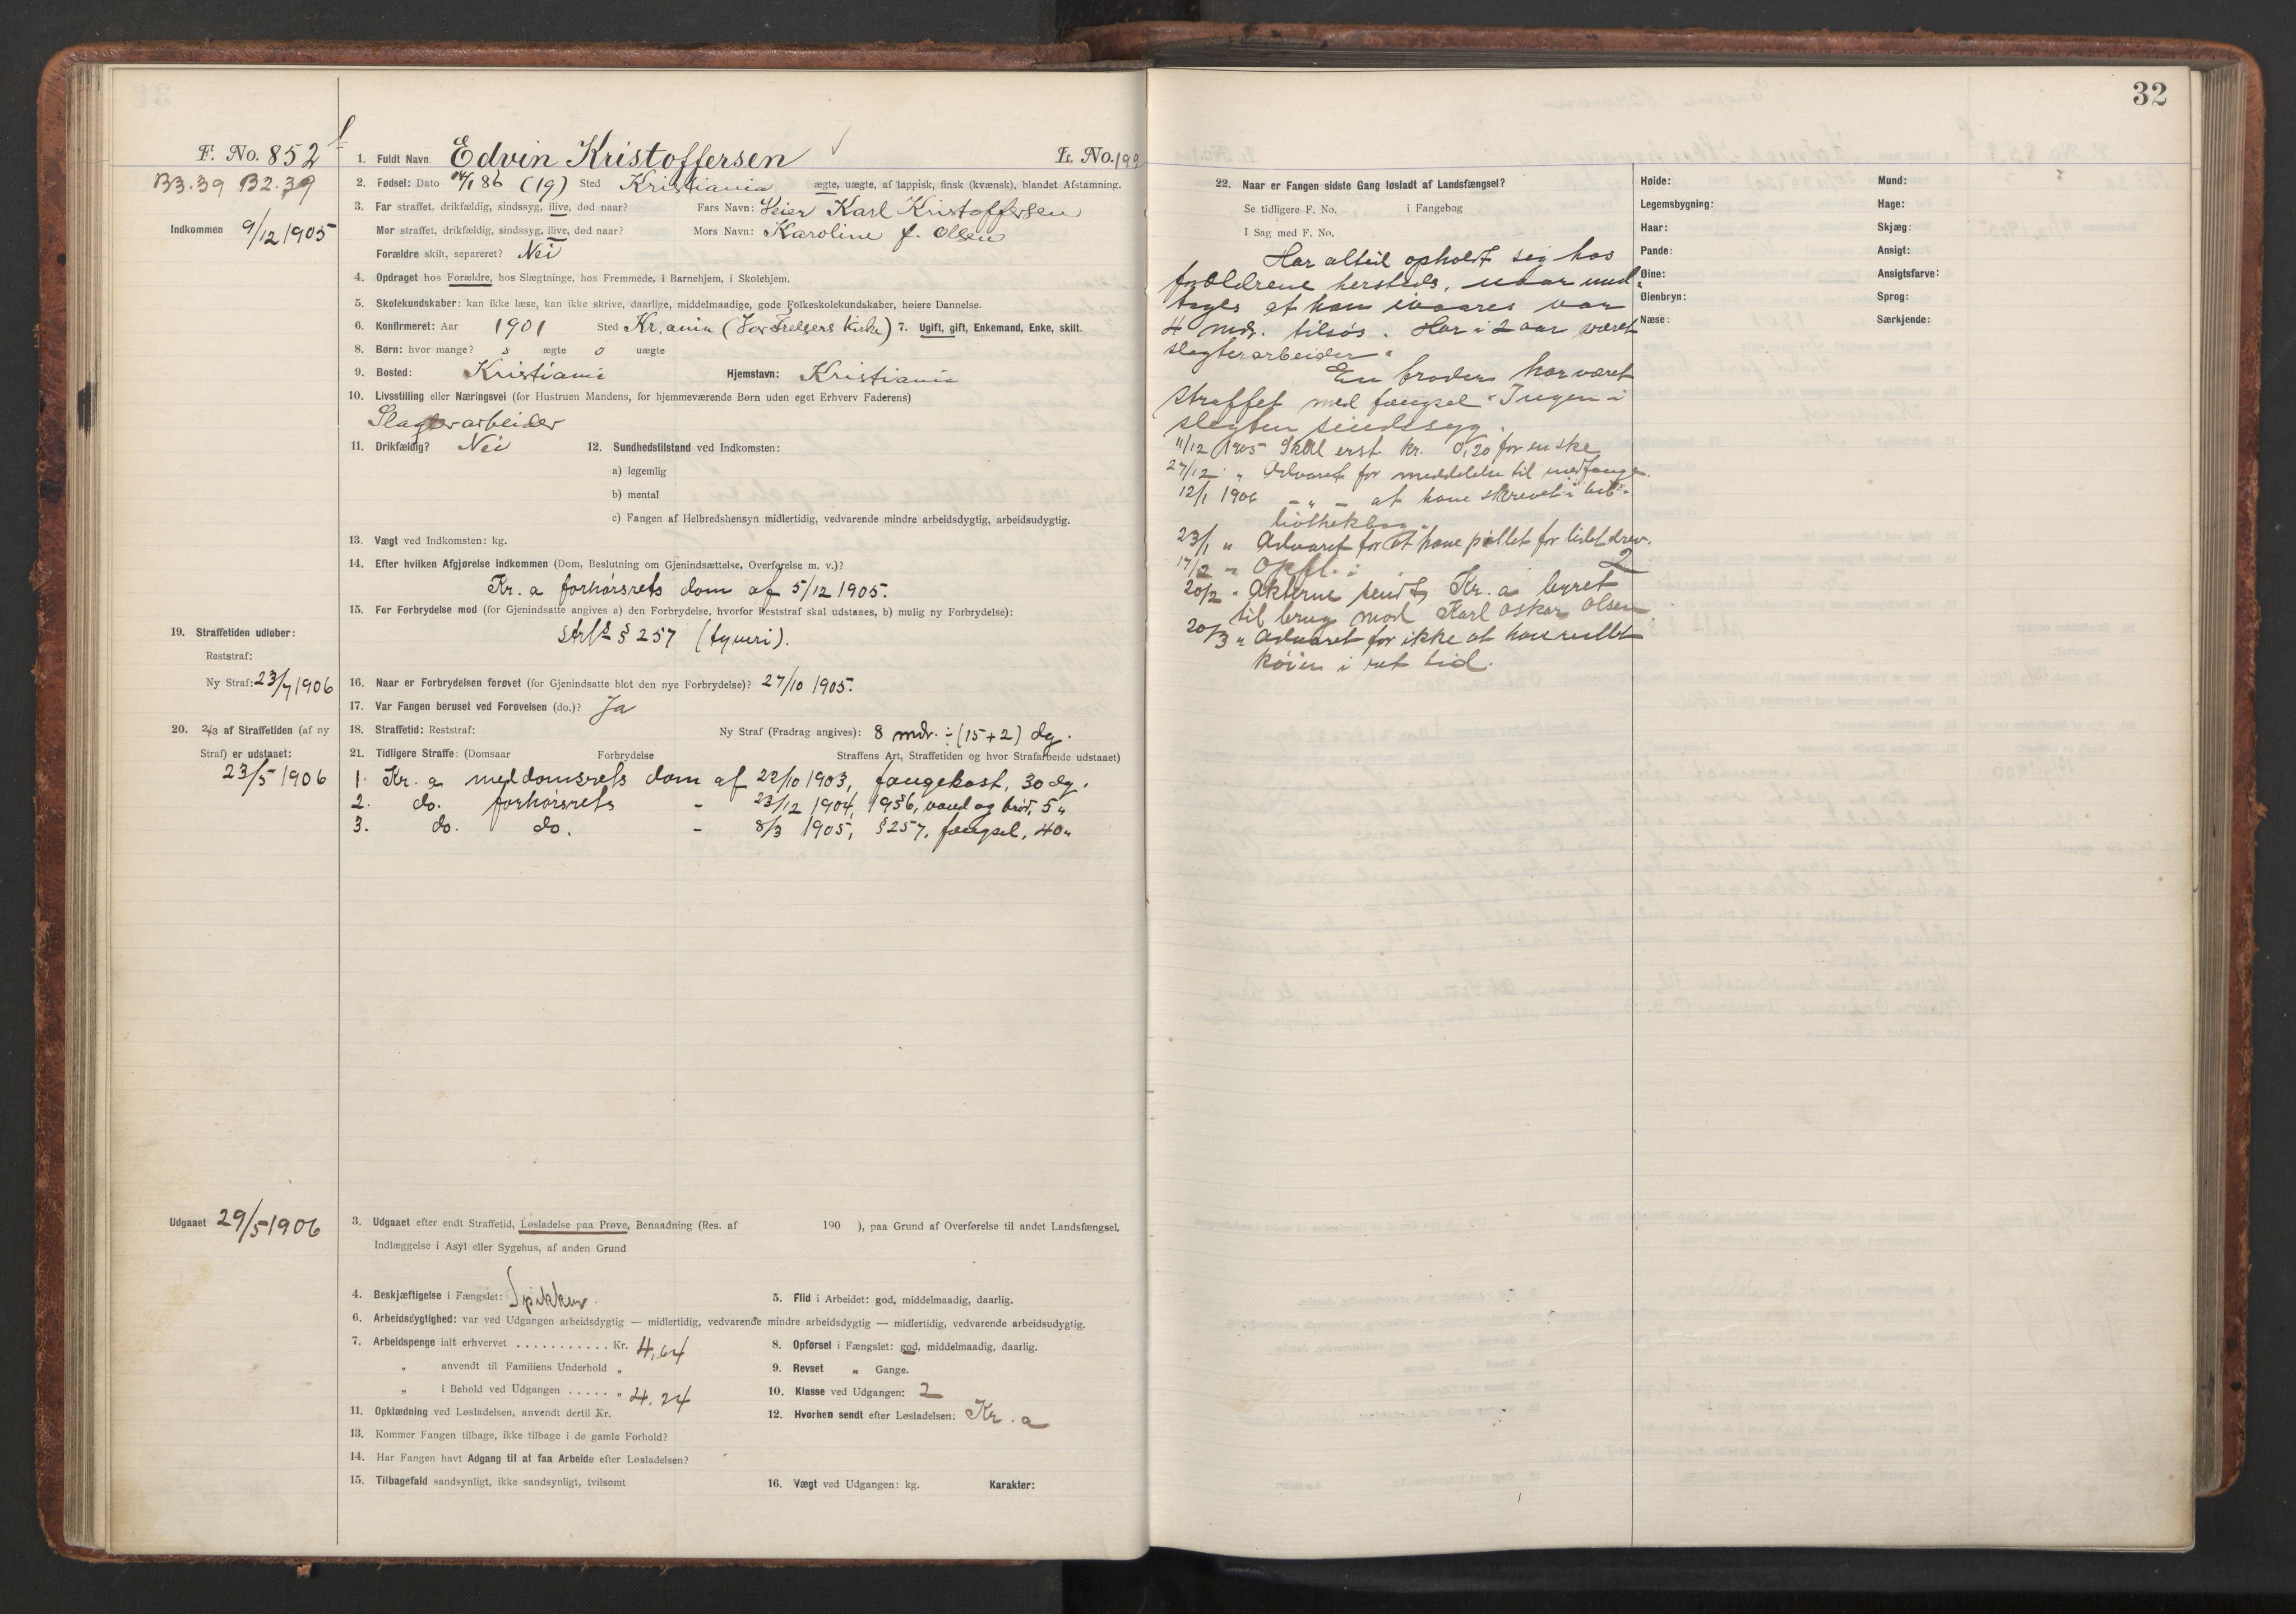 32
F. No. 852
1. Fuldt Navn Edvin Kristoffersen L. No. 199
B3.39 B2.39
2. Fødsel: Dato 14/1 86 (19) Sted Kristiania ægte, uægte, af lappisk, finsk (kvænsk), blandet Afstamning.
3. Far straffet, drikfældig, sindssyg, ilive, død naar? Fars Navn: Veier Karl Kristoffersen
Indkommen 9/12 1905
Mor straffet, drikfældig, sindssyg, ilive, død naar? Mors Navn: Karoline f. Olsen
Forældre skilt, separeret? Nei
4. Opdraget hos Forældre, hos Slægtninge, hos Fremmede, i Barnehjem, i Skolehjem.
5. Skolekundskaber: kan ikke læse, kan ikke skrive, daarlige, middelmaadige, gode Folkeskolekundskaber, høiere Dannelse.
6. Konfirmeret: Aar 1901 Sted Kr.ania (Vor Frelsers Kirke) 7. Ugift, gift, Enkemand, Enke, skilt.
8. Børn: hvor mange? ægte 0 uægte
9. Bosted: Kristiania Hjemstavn: Kristiania
10. Livsstilling eller Næringsvei (for Hustruen Mandens, for hjemmeværende Børn uden eget Erhverv Faderens)
Slagterarbeider
11. Drikfældig? Nei 12. Sundhedstilstand ved Indkomsten:
a) legemlig
b) mental
c) Fangen af Helbredshensyn midlertidig, vedvarende mindre arbeidsdygtig, arbeidsudygtig.
13. Vægt ved Indkomsten: kg.
14. Efter hvilken Afgjørelse indkommen (Dom, Beslutning om Gjenindsættelse, Overførelse m. v.)?
Kr. a forhørsrets dom af 5/12 1905.
15. For Forbrydelse mod (for Gjenindsatte angives a) den Forbrydelse, hvorfor Reststraf skal udstaaes, b) mulig ny Forbrydelse):
strfl § 257 (tyveri).
19. Straffetiden udløber:
Reststraf:
Ny Straf: 23/7 1906
16. Naar er Forbrydelsen forøvet (for Gjenindsatte blot den nye Forbrydelse)? 27/10 1905.
17. Var Fangen beruset ved Forøvelsen (do.)? Ja
20. 2/3 af Straffetiden (af ny
Straf) er udstaaet:
23/5 1906
18. Straffetid: Reststraf: Ny Straf (Fradrag angives): 8 mdr. ÷ (15+2) dg.
21. Tidligere Straffe: (Domsaar Forbrydelse Straffens Art, Straffetiden og hvor Strafarbeide udstaaet)
1. Kr. a meddomsrets dom af 22/10 1903, fangekost, 30 dg.
2. do. forhørsrets - 23/12 1904, vand og brød, 5 "
3. do. do. - 8/3 1905, § 257, fængsel, 40 "
Udgaaet 29/5 1906
3. Udgaaet efter endt Straffetid, Løsladelse paa Prøve, Benaadning (Res. af 190 ), paa Grund af Overførelse til andet Landsfængsel,
Indlæggelse i Asyl eller Sygehus, af anden Grund
4. Beskjæftigelse i Fængslet: Spikker. 5. Flid i Arbeidet: god, middelmaadig, daarlig.
6. Arbeidsdygtighed: var ved Udgangen arbeidsdygtig — midlertidig, vedvarende mindre arbeidsdygtig — midlertidig, vedvarende arbeidsudygtig.
7. Arbeidspenge ialt erhvervet . . . . . . . . . . . Kr. 4,64 8. Opførsel i Fængslet: god, middelmaadig, daarlig.
" anvendt til Familiens Underhold " 9. Revset " Gange.
" i Behold ved Udgangen . . . . . " 4.24 10. Klasse ved Udgangen: 2
11. Opklædning ved Løsladelsen, anvendt dertil Kr. 12. Hvorhen sendt efter Løsladelsen: Kr. a
13. Kommer Fangen tilbage, ikke tilbage i de gamle Forhold?
14. Har Fangen havt Adgang til at faa Arbeide efter Løsladelsen?
15. Tilbagefald sandsynligt, ikke sandsynligt, tvilsomt 16. Vægt ved Udgangen: kg. Karakter:
22. Naar er Fangen sidste Gang løsladt af Landsfængsel?
Se tidligere F. No. i Fangebog
I Sag med F. No.
Har altid opholdt sig hos
forældrene hersteds, naar und
tages at han ivaares var
4 mdr. tilsøs. Har i 2 aar været
slagterarbeider.
En broder har været
straffet med fængsel. Ingen i
slegten sindssyg.
11/12 1905 Skal erst kr. 0,20 for en ske
27/12 " Advaret for meddelelse til medfange.
12/1 1906 - " - at have skrevet i bib-
liothekbog.
23/1 " Advaret for at have pillet for lidet drev.
17/2 " Opfl. i 2
20/2 " Akterne sendt Kr. a byret
til brug mod Karl Oskar Olsen
20/3 " Advaret for ikke at have rullet
køien i ret tid.
Høide: Mund:
Legemsbygning: Hage:
Haar: Skjæg:
Pande: Ansigt:
Øine: Ansigtsfarve:
Øienbryn: Sprog:
Næse: Særkjende: